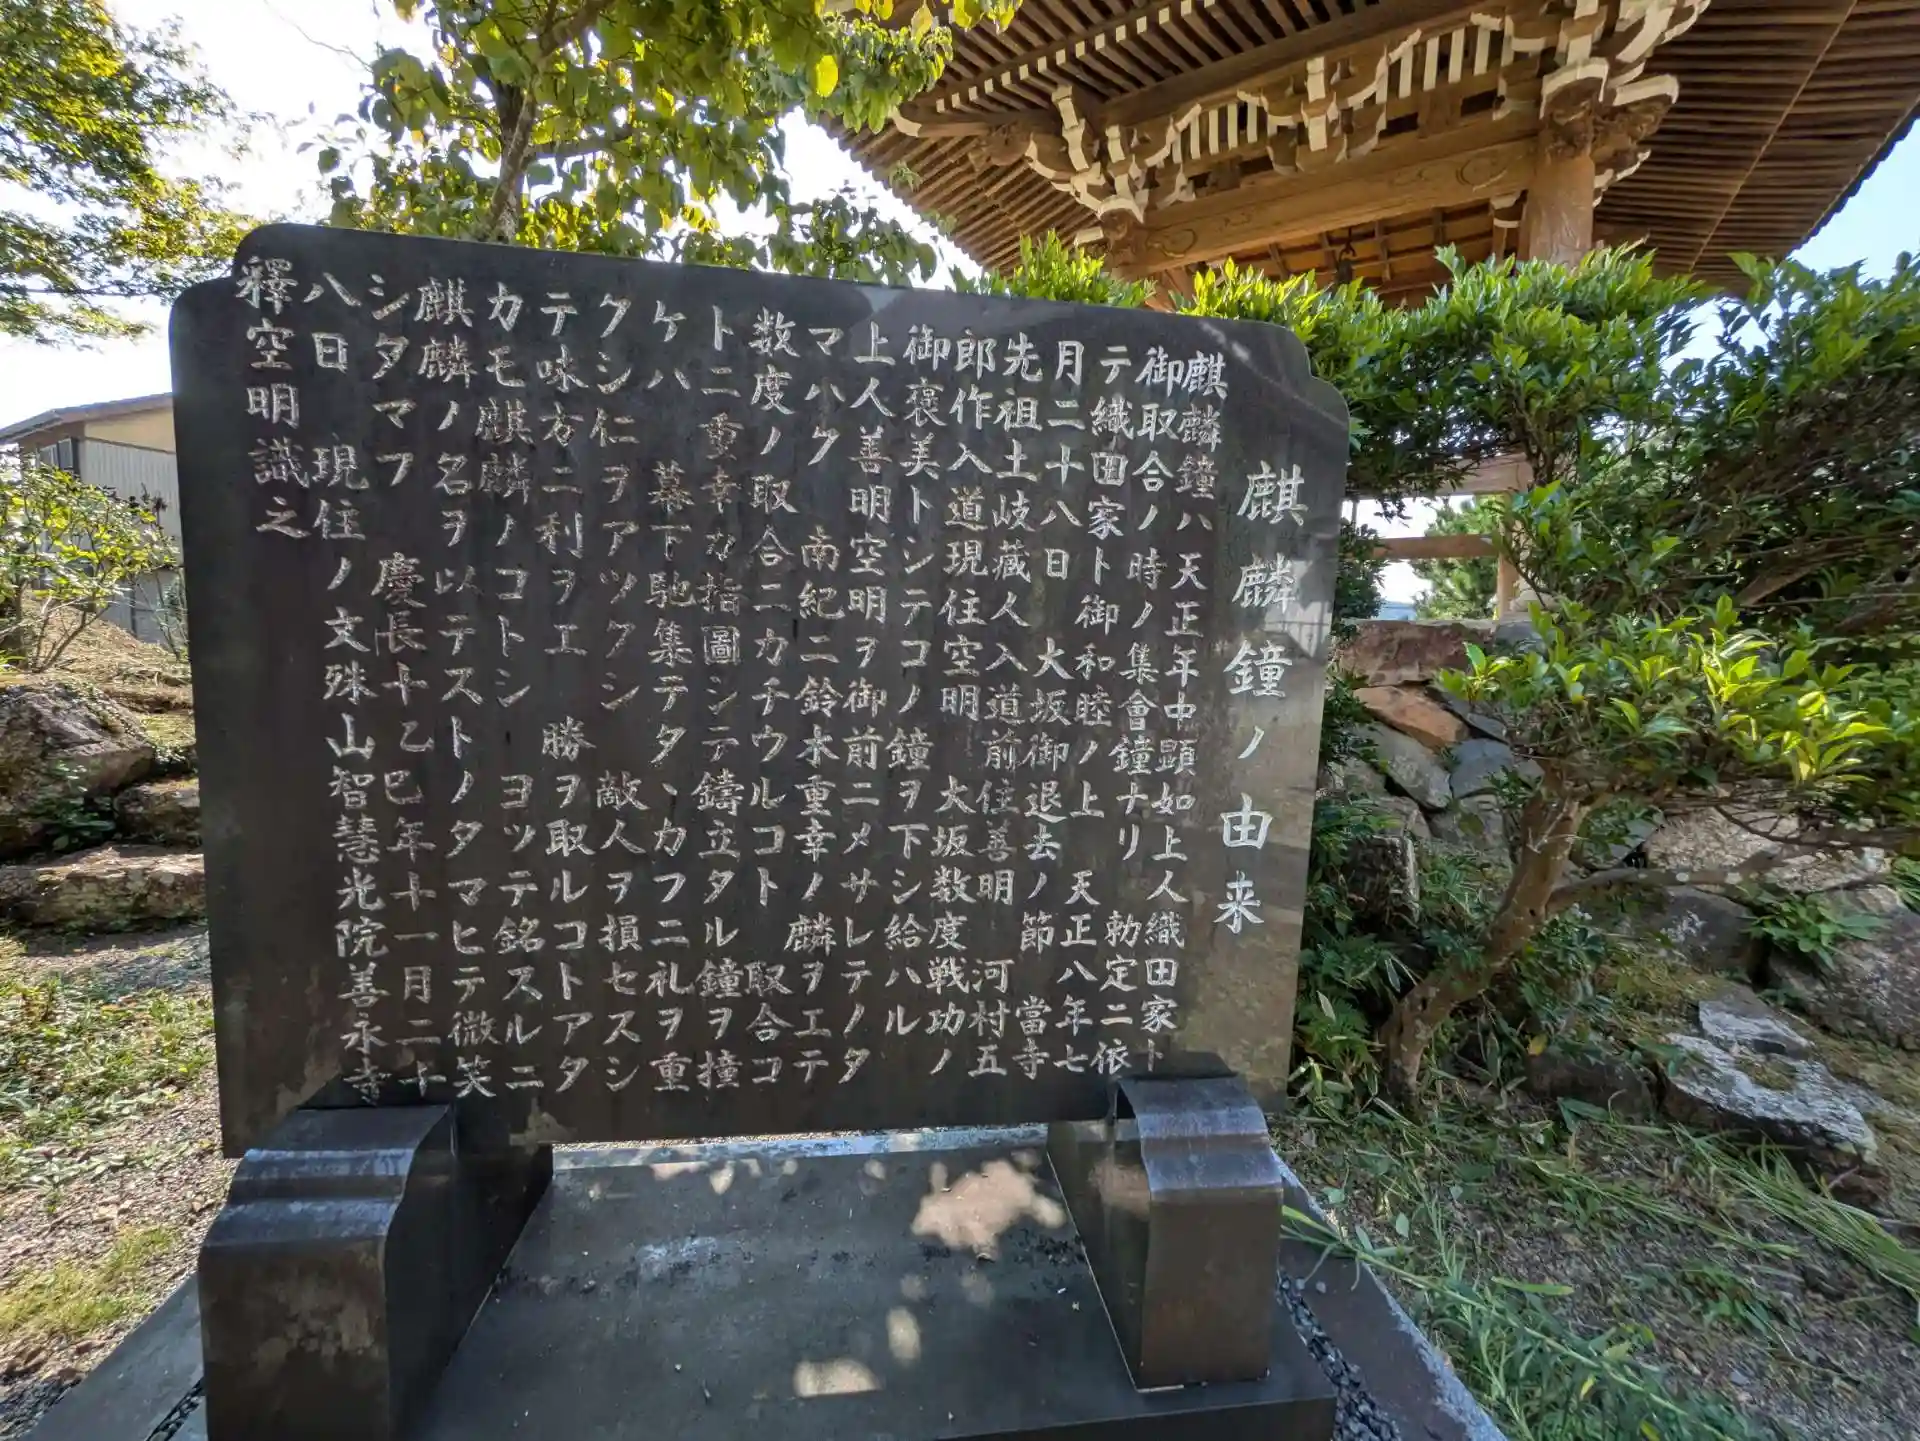 麒麟鐘ノ由来
麒麟鐘ハ天正年中顕如上人織田家ト
御取合ノ時ノ集會鐘ナリ 勅定ニ依
テ織田家ト御和睦ノ上 天正八年七
月二十八日 大坂御退去ノ節 當寺
先祖土岐蔵人入道前住善明 河村五
郎作入道現住空明 大坂数度戦功ノ
御褒美トシテコノ鐘ヲ下シ給ハル
上人善明空明ヲ御前ニメサレテノタ
マハク 南紀ニ鈴木重幸ノ麟ヲエテ
数度ノ取合ニカチウルコト 取合コ
トニ重幸カ指圖シテ鑄立タル鐘ヲ撞
ケハ 幕下馳集テタヽカフニ礼ヲ重
クシ仁ヲアツクシ 敵人ヲ損セスシ
テ味方ニ利ヲエ 勝ヲ取ルコトアタ
カモ麒麟ノコトシ ヨツテ銘スルニ
麒麟ノ名ヲ以テストノタマヒテ微笑
シタマフ 慶長十乙巳年十一月二十
八日 現住ノ文殊山智慧光院善永寺
釋空明識之